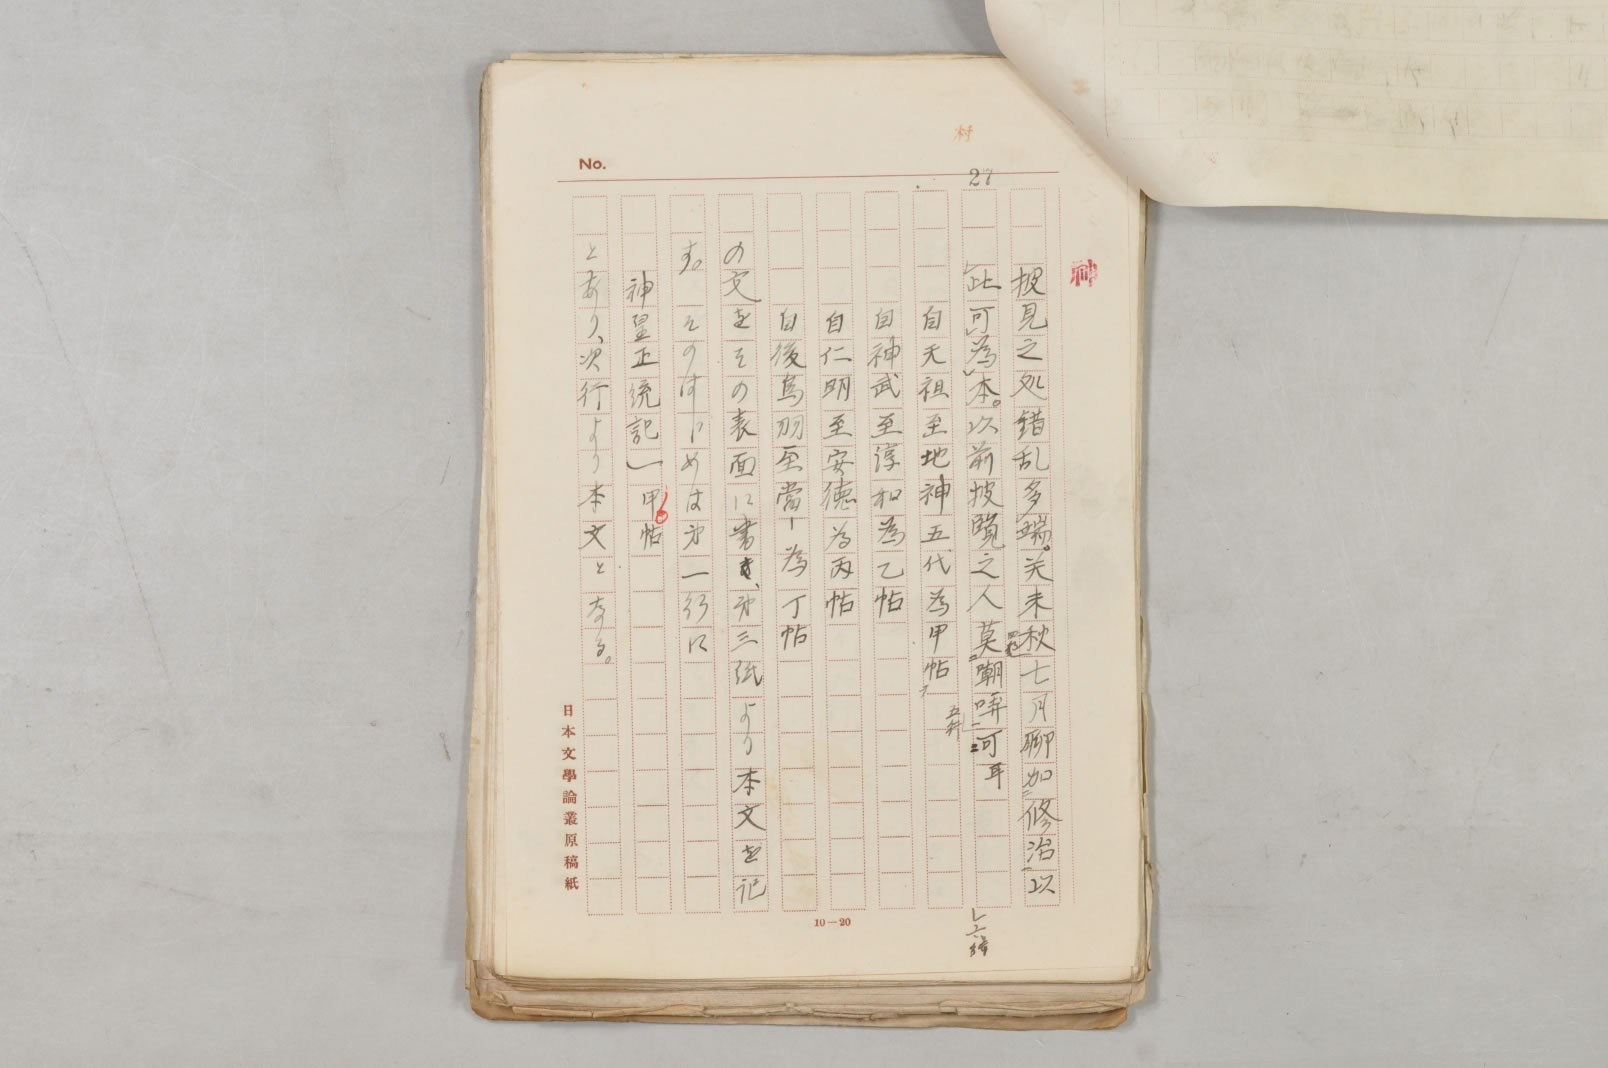 村
No.
27
神
披見之処錯乱多端。癸未秋七月聊加修治以
此可為本。以前披覧之人莫嘲哢
可耳
自天祖至地神五代為甲帖
自神武至淳和為乙帖
自仁明至安徳為丙帖
自後鳥羽至當一為丁帖
の文をその表面に書き、第三紙より本文を記
す。そのはじめは第一行に
神皇正統記 甲帖
とあり、次行より本文となる。
日本文學論叢原稿紙
10—20